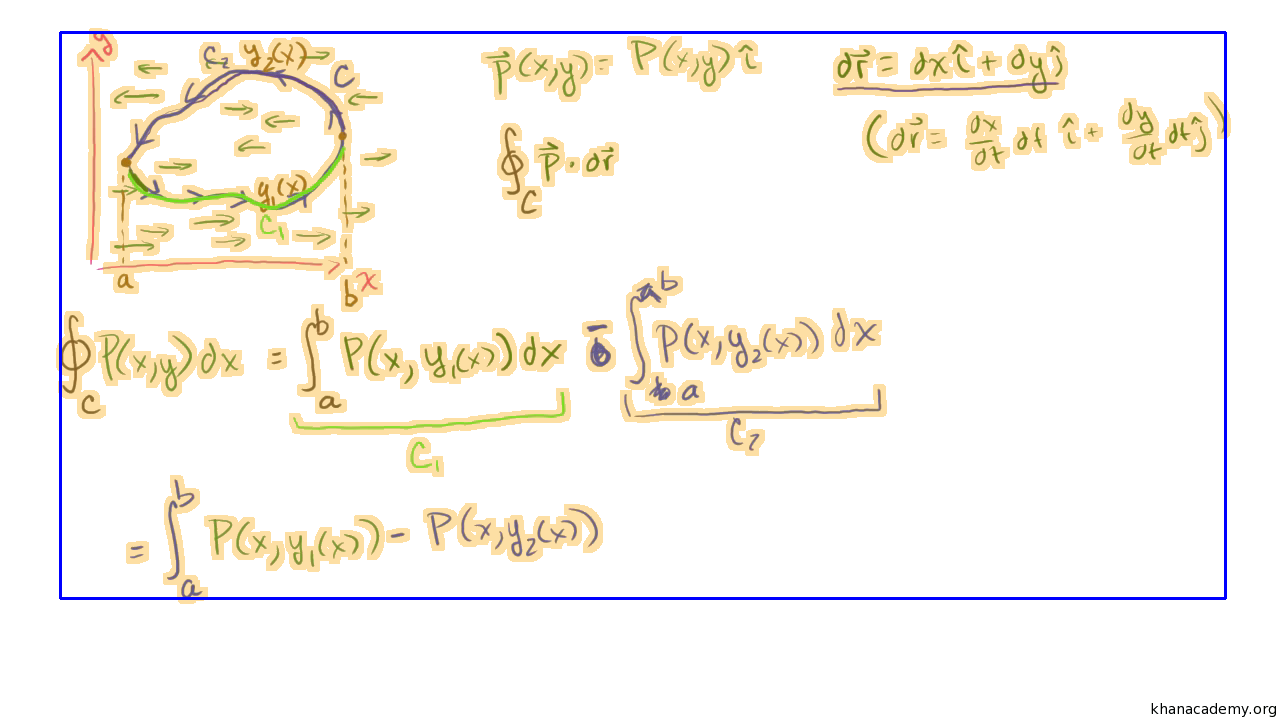 y
C₂ y₂(x) C
y₁(x)
C₁
a b x
P⃗(x,y) = P(x,y) î
dr⃗ = dx î + dy ĵ
(dr⃗ = dx/dt dt î + dy/dt dt ĵ)
∮_C P⃗ · dr⃗
∮_C P(x,y) dx = ∫_a^b P(x, y₁(x)) dx − ∫_a^b P(x, y₂(x)) dx
C₁ C₂
= ∫_a^b P(x, y₁(x)) − P(x, y₂(x))
khanacademy.org